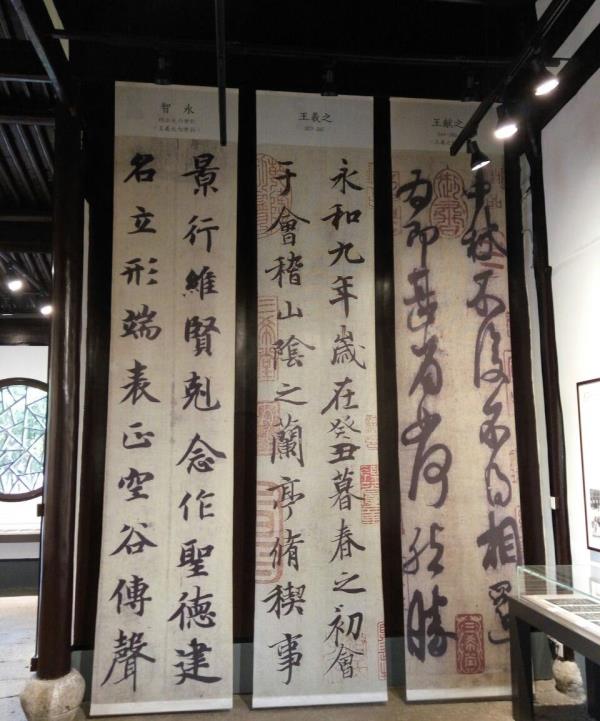 智永
景行維賢剋念作聖德建
名立形端表正空谷傳聲
王羲之
永和九年歲在癸丑暮春之初會
于會稽山陰之蘭亭脩稧事
王献之
中秋不復不得相還
為即甚省如何然勝